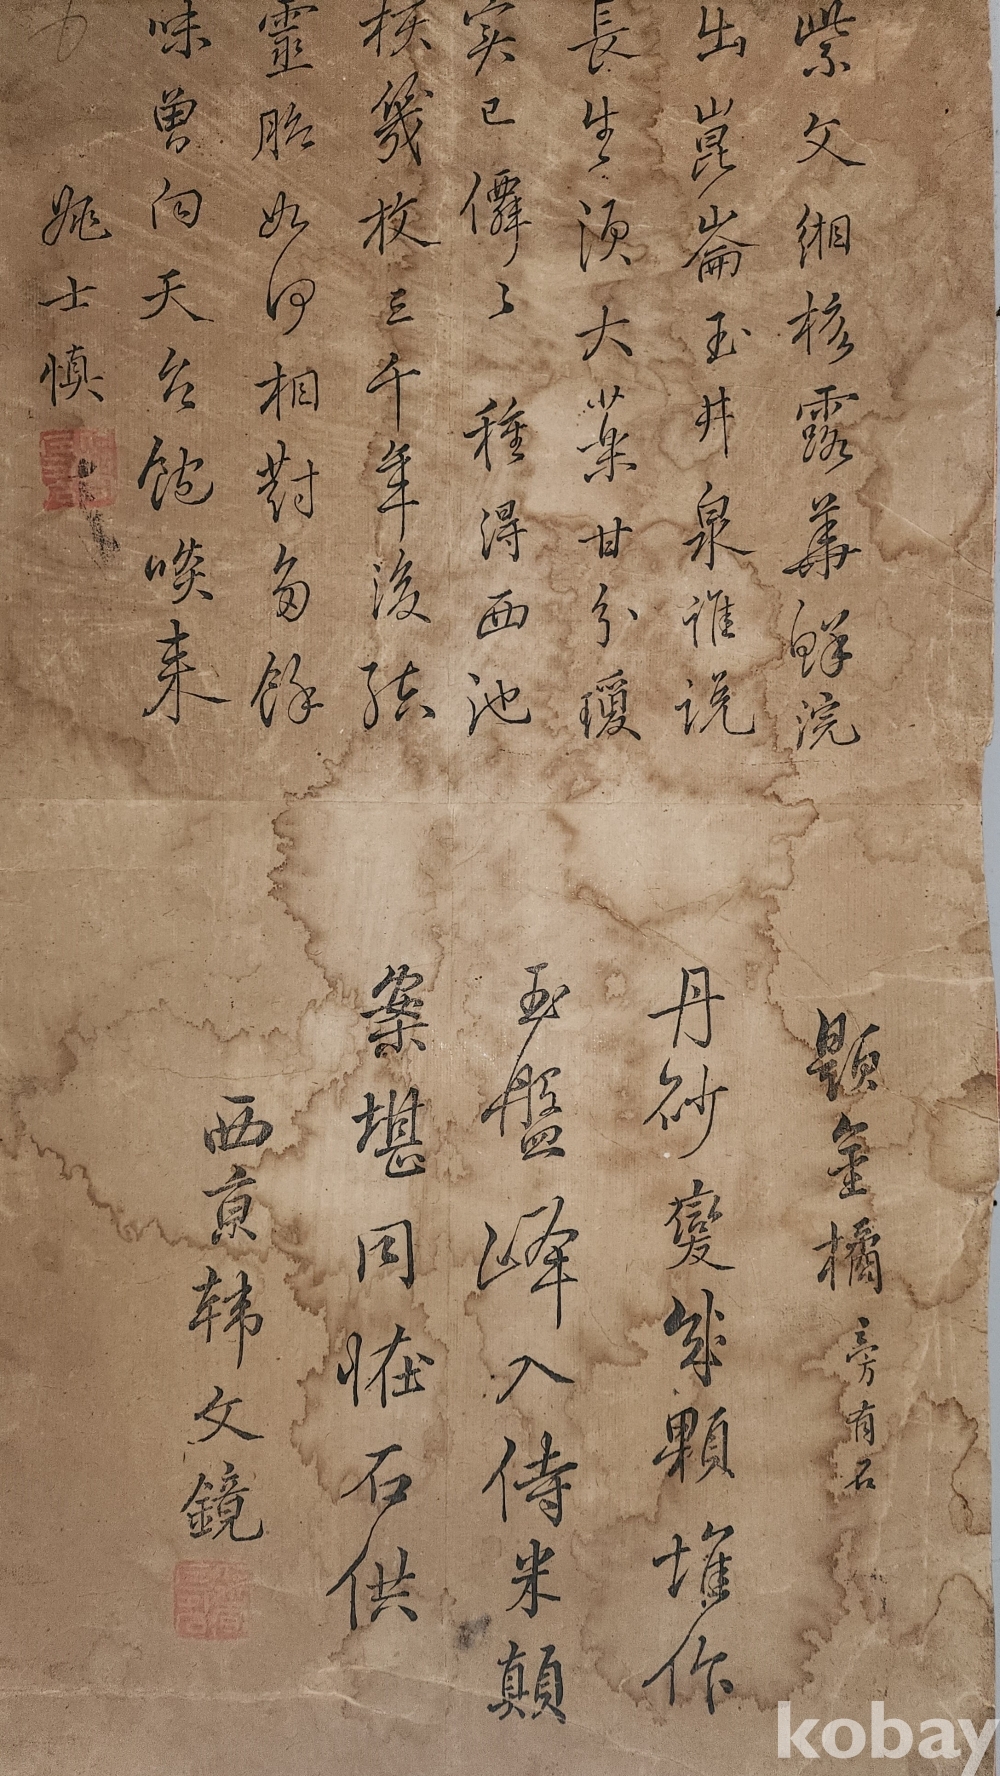 紫文緗核露華鮮浣
出崑崙玉井泉誰説
長生須大藥甘分瓊
實已僊〻種得西池
核幾枚三千年後結
靈胎如何相對芻餘
味曾向天台飽啖来
姚士慎
題金橘旁有石
丹砂變幾顆堆作
玉盤峰入侍米顛
案堪同怪石供
西京韩文鏡
kobay